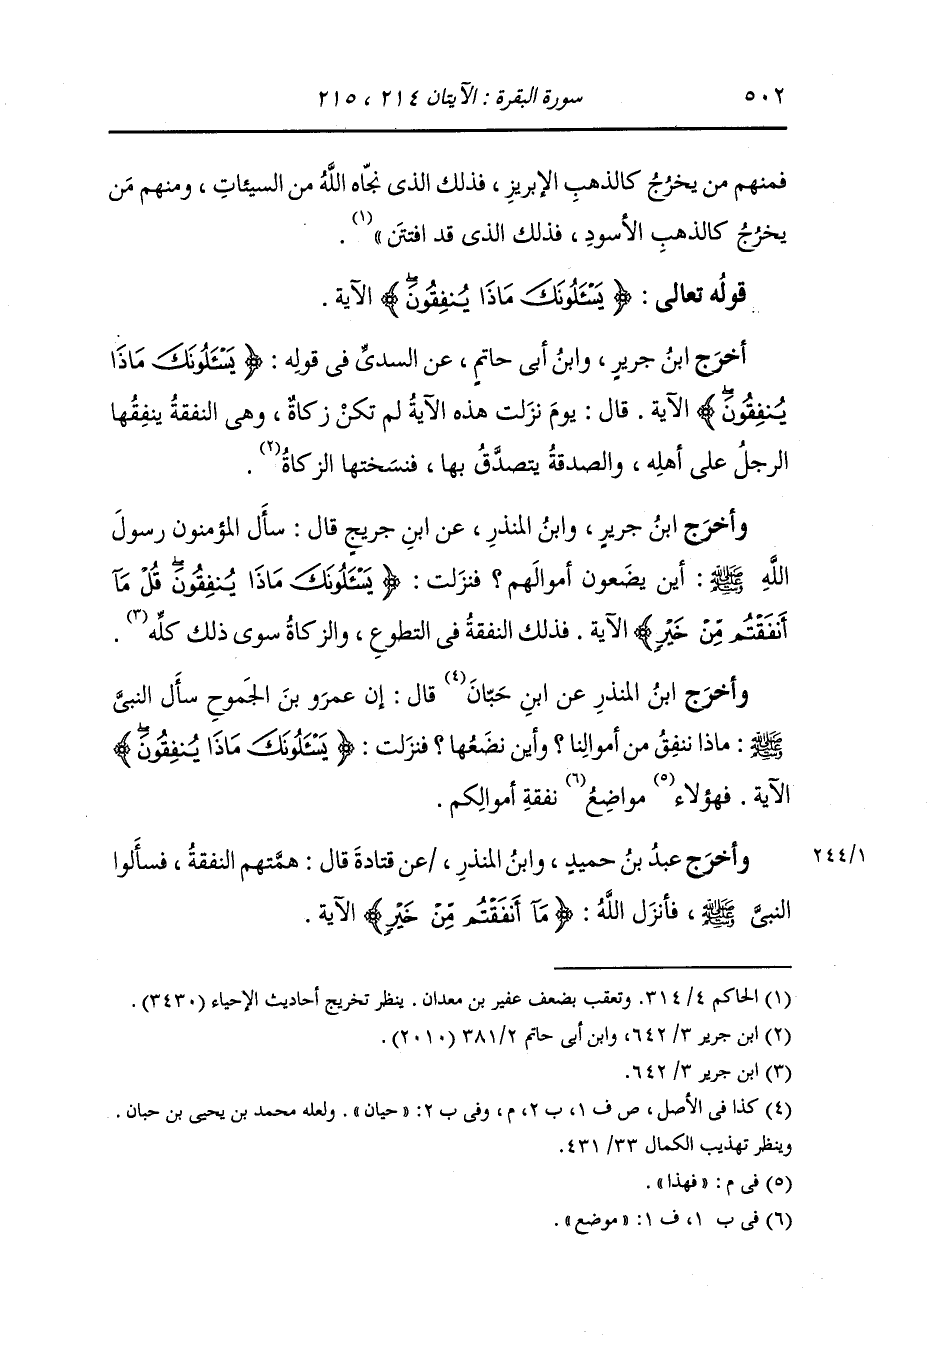 ٥٠٢ سورة البقرة : الآيتان ٢١٤ ، ٢١٥
فمنهم من يخرُجُ كالذهبِ الإبريزِ ، فذلك الذى نجّاه اللَّهُ من السيئاتِ ، ومنهم مَن
يخرُجُ كالذهبِ الأسودِ ، فذلك الذى قد افتتَن »(١) .
قولُه تعالى : ﴿ يَسْـَٔلُونَكَ مَاذَا يُنفِقُونَۖ ﴾ الآية .
أخرَج ابنُ جريرٍ ، وابنُ أبى حاتمٍ ، عن السدىِّ فى قولِه : ﴿ يَسْـَٔلُونَكَ مَاذَا
يُنفِقُونَۖ ﴾ الآية . قال : يومَ نزَلت هذه الآيةُ لم تكنْ زكاةٌ ، وهى النفقةُ ينفِقُها
الرجلُ على أهلِه ، والصدقةُ يتصدَّقُ بها ، فنسَختها الزكاةُ(٢) .
وأخرَج ابنُ جريرٍ ، وابنُ المنذرِ ، عن ابنِ جريجٍ قال : سأَل المؤمنون رسولَ
اللَّهِ ﷺ : أين يضَعون أموالَهم ؟ فنزَلت : ﴿ يَسْـَٔلُونَكَ مَاذَا يُنفِقُونَۖ قُلْ مَآ
أَنفَقْتُم مِّنْ خَيْرٍ ﴾ الآية . فذلك النفقةُ فى التطوعِ ، والزكاةُ سوى ذلك كلِّه(٣) .
وأخرَج ابنُ المنذرِ عن ابنِ حَبّانَ(٤) قال : إن عمرَو بنَ الجَموحِ سأَل النبىَّ
ﷺ : ماذا ننفِقُ من أموالِنا ؟ وأين نضَعُها ؟ فنزَلت : ﴿ يَسْـَٔلُونَكَ مَاذَا يُنفِقُونَۖ ﴾
الآية . فهؤلاء(٥) مواضِعُ(٦) نفقةِ أموالِكم .
وأخرَج عبدُ بنُ حميدٍ ، وابنُ المنذرِ ، /عن قتادةَ قال : همَّتهم النفقةُ ، فسأَلوا ٢٤٤/١
النبىَّ ﷺ ، فأنزَل اللَّهُ : ﴿ مَآ أَنفَقْتُم مِّنْ خَيْرٍ ﴾ الآية .
(١) الحاكم ٤/ ٣١٤. وتعقب بضعف عفير بن معدان . ينظر تخريج أحاديث الإحياء (٣٤٣٠) .
(٢) ابن جرير ٣/ ٦٤٢، وابن أبى حاتم ٣٨١/٢ (٢٠١٠) .
(٣) ابن جرير ٣/ ٦٤٢.
(٤) كذا فى الأصل ، ص ف ١، ب ٢، م ، وفى ب ٢: « حيان » . ولعله محمد بن يحيى بن حبان .
وينظر تهذيب الكمال ٣٣/ ٤٣١.
(٥) فى م : « فهذا » .
(٦) فى ب ١، ف ١: « موضع » .